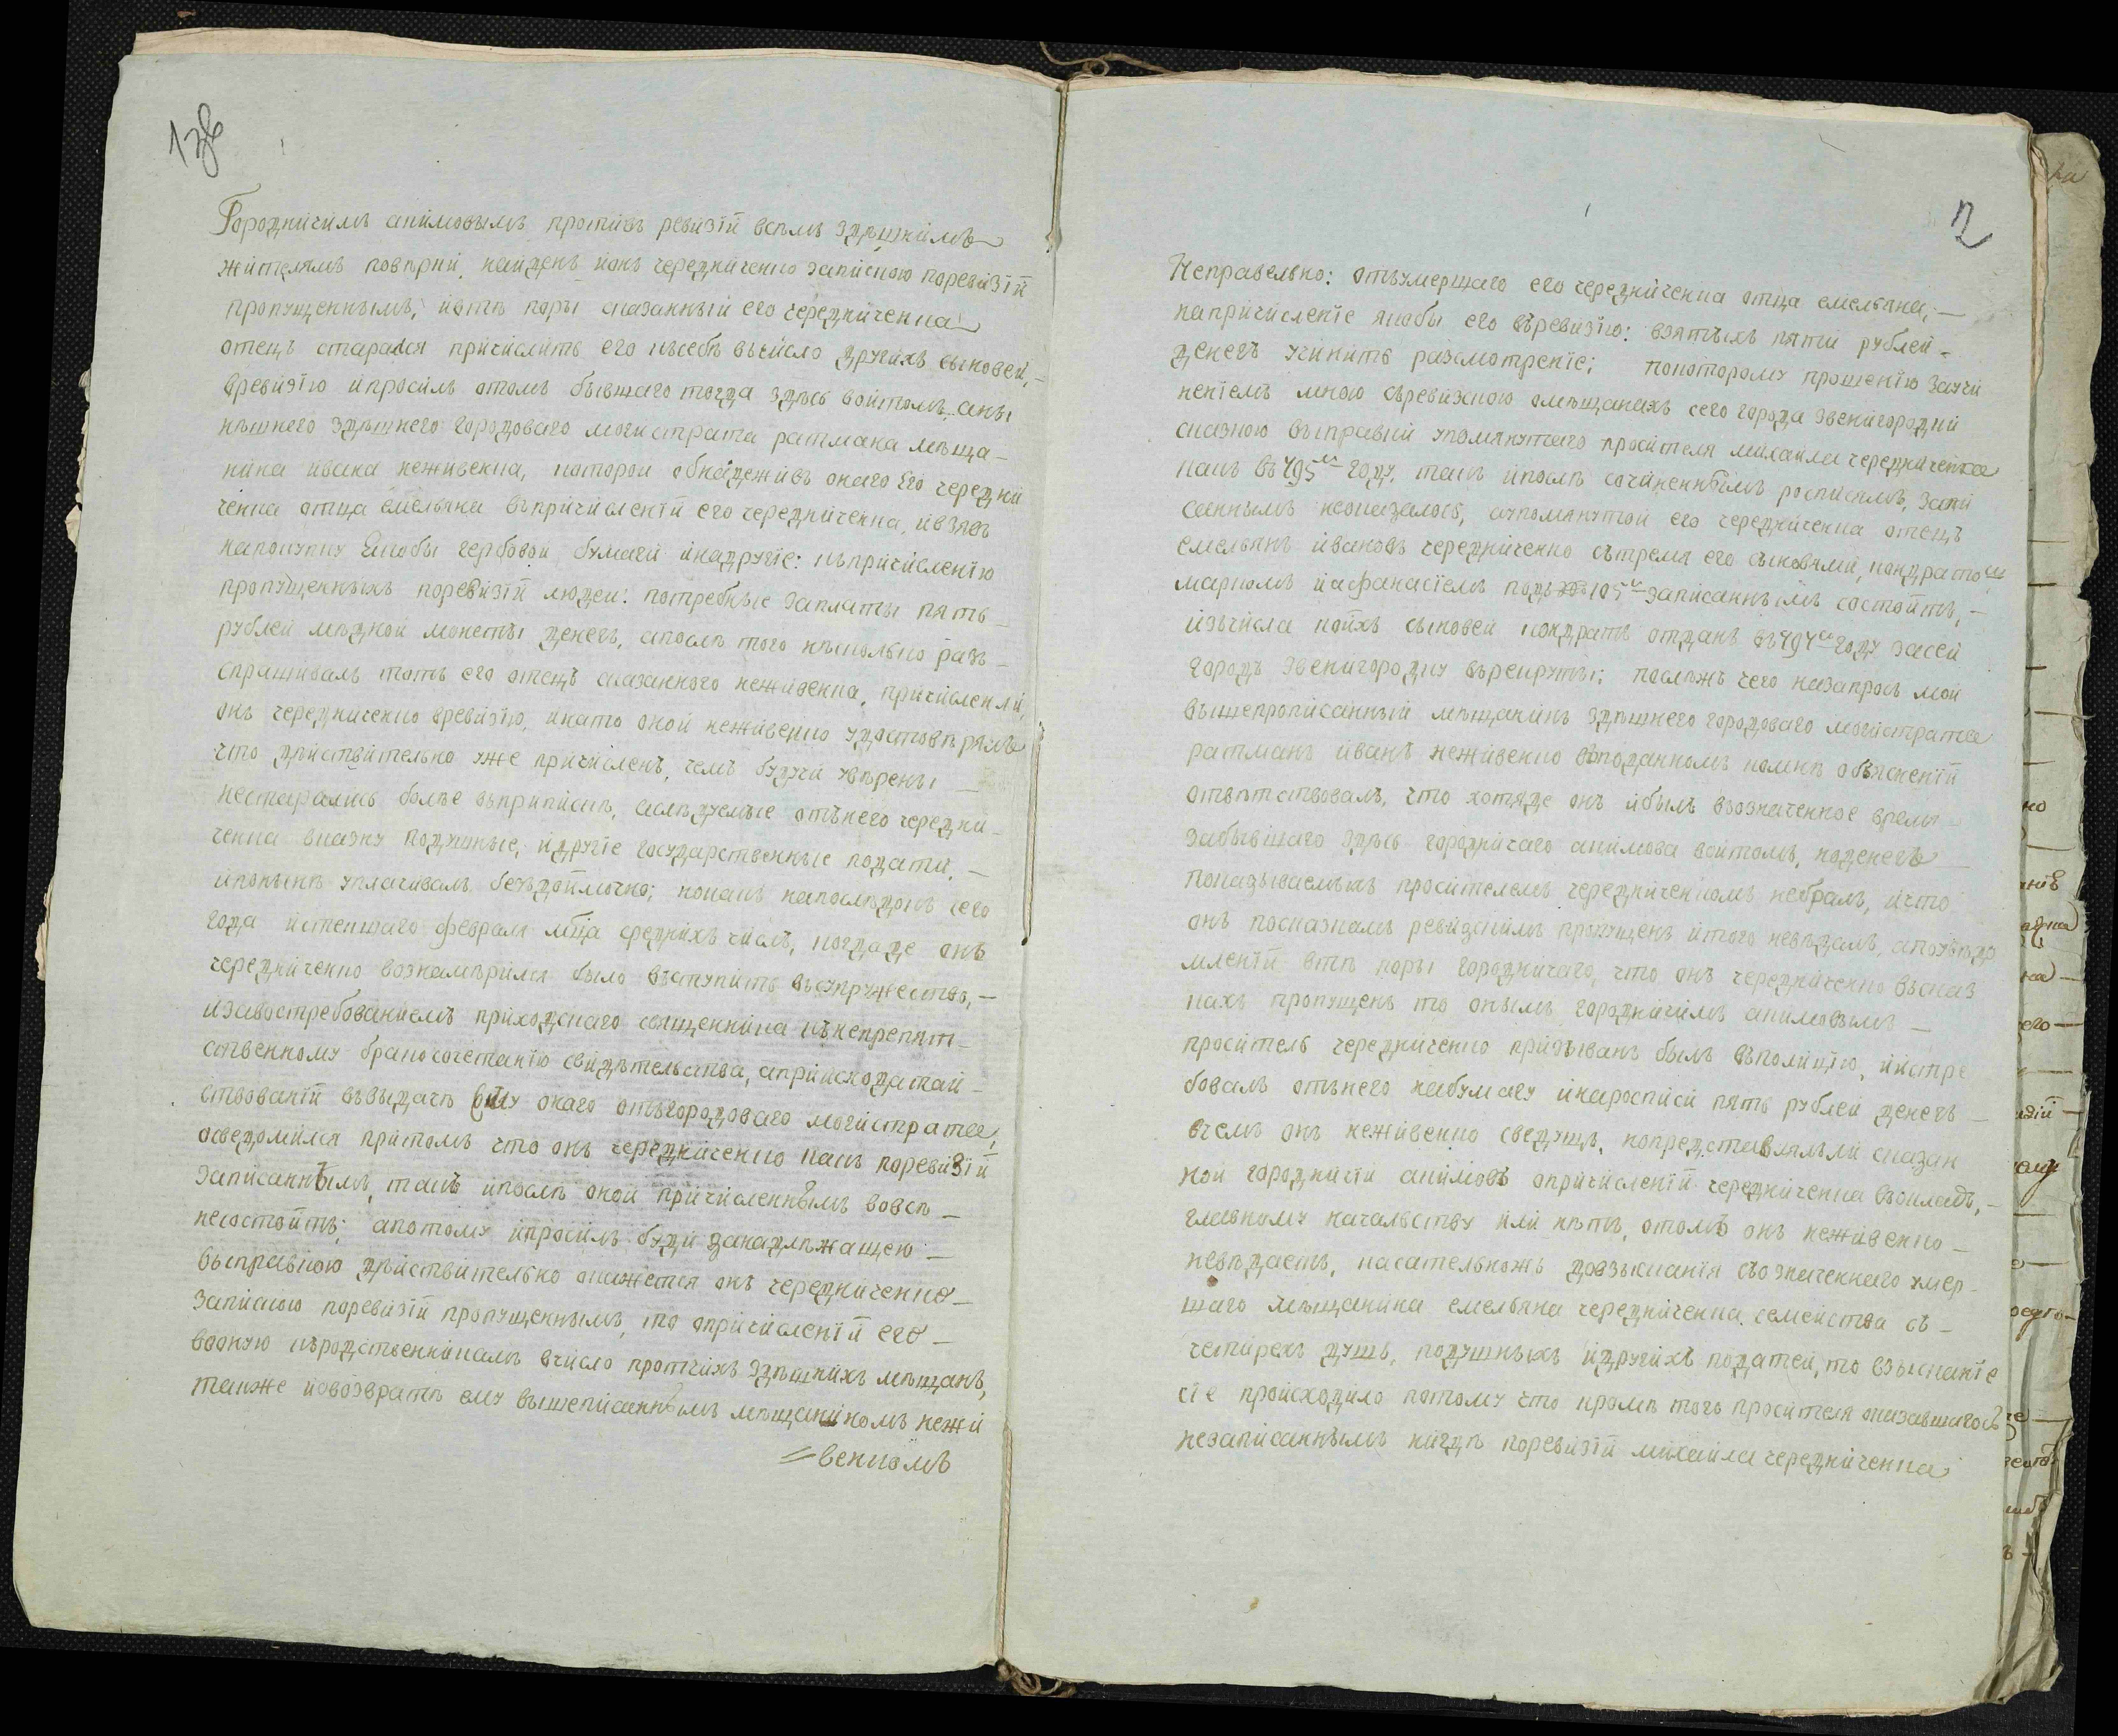 1 зв
Городничимъ акимовымъ противъ ревизіи всемъ здѣшнимъ
жителямъ повѣрки, найденъ йонъ чередниченко запискою поревизіи
пропущеннымъ, ивтѣ поры сказанный его чередниченка
отецъ старался причислить его ксебѣ вчисло другихъ сыновей,
вревизію ипросилъ отомъ бывшаго тогда здѣсь войтомъ, аны
нѣшнего здѣшнего городоваго могистрата ратмана мѣща-
нина ивана неживенка, которои обнадеживъ онаго Его чередни
ченка отца емельяна въпричисленіи его чередниченка, ивзявъ
напокупку Якобы гербовой бумаги инадругіе: къпричисленію
пропущенныхъ поревизіи людеи: потребные заплаты пять
рублей мѣдной монеты денегъ, апослѣ того нѣсколько разъ-
спрашивалъ тотъ его отецъ сказанного неживенка, причисленъ ли,
онъ чередниченко вревизію, инато оной неживенко удостоверялъ
что дѣйствительно уже причисленъ, чемъ будучи увѣрены
нестарались болѣе въприписке, аслѣдуемые отънего чередни-
ченка вказну подушные, идругіе государственные подати, -
ипонынѣ уплачивалъ бездоимочно; конанъ напоследокъ сего
года истекшаго февраля мца среднихъ числъ, когдаде онъ
чередниченко вознамѣрился было въступить въсупружество, -
изавостребованиемъ приходскаго священника къ непрепят-
ственному бракосочетанію свидѣтельства, априисходатай-
ствованіи въвыдачѣ Ему онаго отъгородоваго могистрата,
осведомился притомъ что онъ чередниченко какъ поревизіи
записаннымъ, такъ ипослѣ оной причисленнымъ вовсѣ -
несостоитъ; апотому ипросилъ буди занадлѣжащею -
выправкою дѣйствительно окажется онъ чередниченко -
запискою поревизіи пропущеннымъ, то опричисленіи его -
воную къродственникамъ вчисло протчихъ здѣшнихъ мѣщанъ,
также иовозвратѣ ему вышеписаннымъ мѣщаниномъ нежи
= венкомъ
2
Неправельно: отъумершаго его чередниченка отца емельяна, -
напричисленіе якобы его въревизію: взятыхъ пяти рублей -
денегъ учинить разсмотреніе; покоторому прошенію заучи
неніемъ мною съревизкою омѣщанахъ сего города звенигородки
сказкою выправки упомянутаго просителя михаила чередниченка
какъ въ 795м году, такъ ипослѣ сочиненнымъ росписямъ, запи
саннымъ неоказалось, аупомянутой его чередниченка отецъ
емельянъ ивановъ чередниченко сътремя его сыновями, кондратомъ
маркомъ иафанасіемъ подъ 105м записаннымъ состоитъ, -
изъчисла коихъ сыновей кондратъ отданъ въ794м году засей
городъ звенигородку врекруты; послѣжъ чего назапросъ мой
вышепрописанный мѣщанинъ здѣшнего городоваго могистрата
ратманъ иванъ неживенко въподанномъ комнѣ объясненіи
отвѣтствовалъ, что хотяде онъ ибылъ вразначенное время
забывшаго здѣсь городничаго акимова войтомъ, ноденегъ
показываемыхъ просителемъ чередниченкомъ небралъ, ичто
онъ посказкамъ ревизскимъ пропущенъ итого невѣдалъ, апоувѣдо
мленіи втѣ поры городничаго, что онъ чередниченко въсказ
кахъ пропущенъ то онымъ городничимъ акимовымъ -
проситель чередниченко призыванъ былъ въполицію, иистре
бовалъ отънего набумагу инаросписи пять рублей денегъ -
вчемъ онъ неживенко сведущъ, нопредставлялъли сказан
ной городничіи акимовъ опричисленіи чередниченка въокладъ, -
главному начальству или нѣтъ, отомъ онъ неживенко -
невѣдаетъ, касательножъ довзысканія съозначеннаго умер-
шаго мѣщанина емельяна чередниченка семейства съ -
четирехъ душъ, подушныхъ идругихъ податей, то взысканіе
сіе происходило потому что кромѣ того просителя оказавшагось
незаписаннымъ нигдѣ поревизіи михаила чередниченка